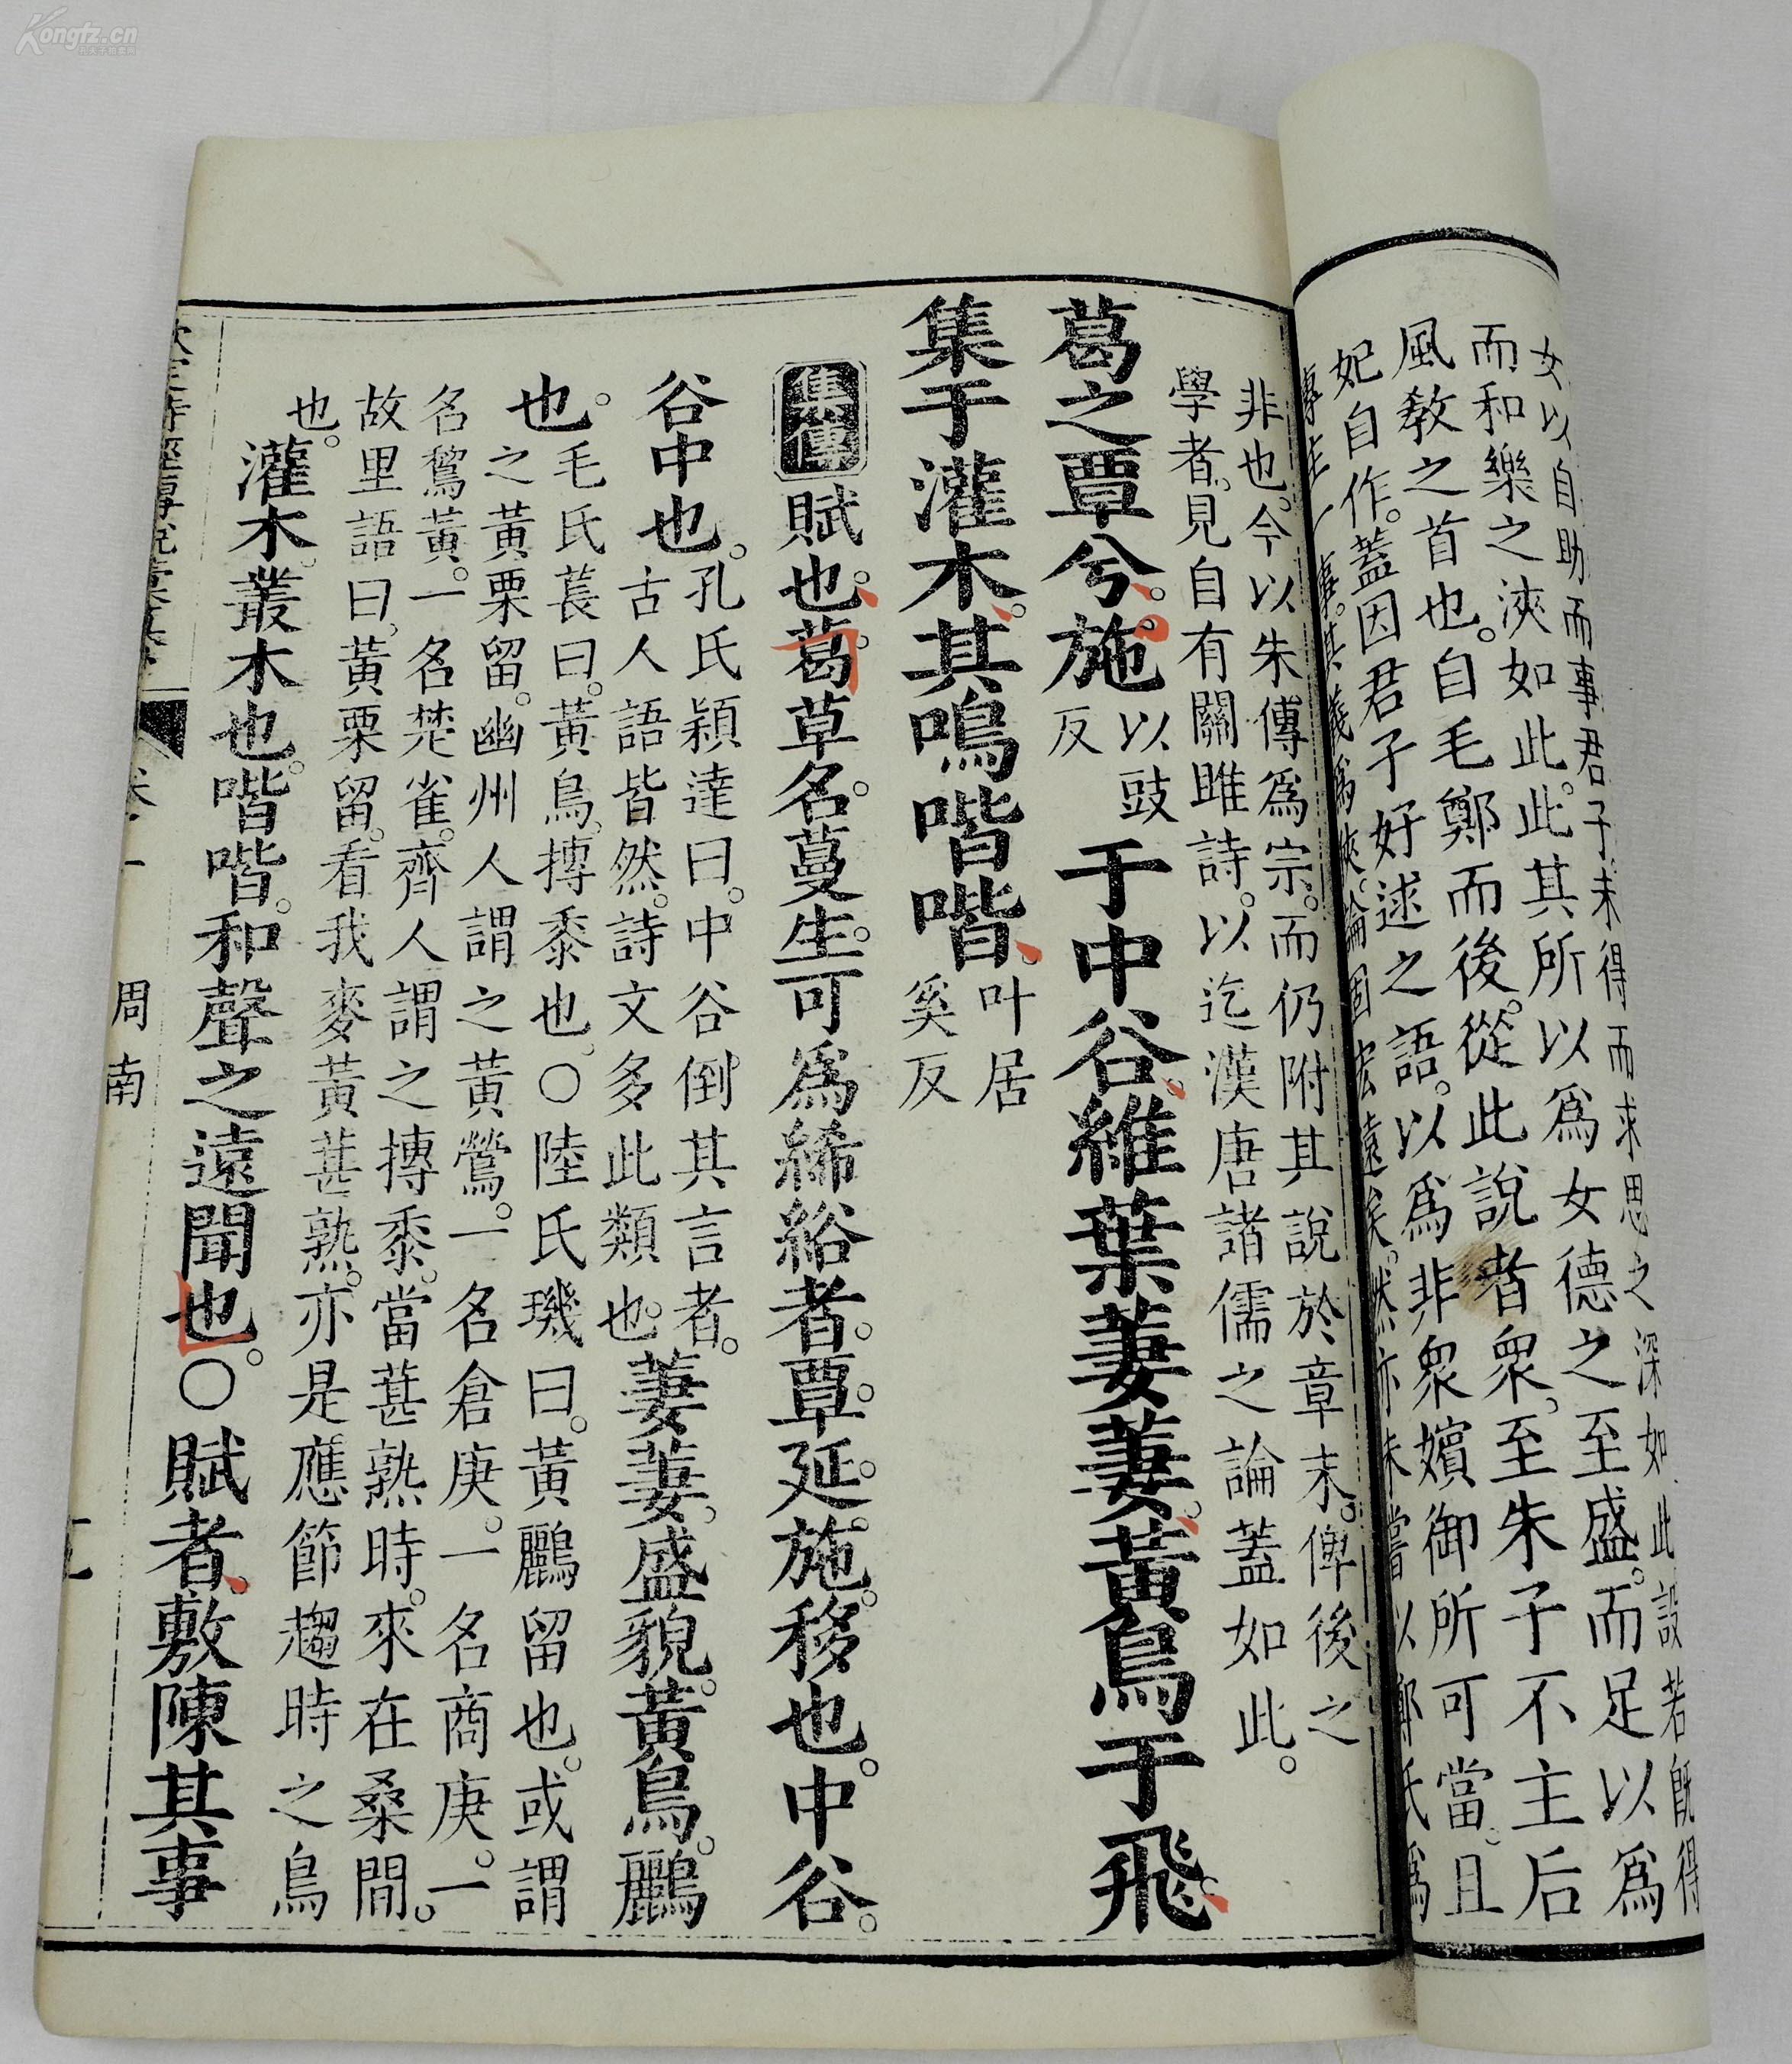 女以自助而事君子未得而求思之深如此設若既得
而和樂之浹如此。此其所以爲女德之至盛。而足以爲
風教之首也。自毛鄭而後。從此說者衆。至朱子不主后
妃自作。蓋因君子好逑之語。以爲非衆嬪御所可當。且
專主一事。其義爲狹。論固宏遠矣。然亦未嘗以鄭氏爲
非也。今以朱傳爲宗。而仍附其說於章末。俾後之
學者。見自有關雎詩。以迄漢唐諸儒之論蓋如此。
葛之覃兮。施以豉反于中谷。維葉萋萋。黃鳥于飛。
集于灌木。其鳴喈喈。叶居奚反
集傳 賦也。葛。草名。蔓生。可爲絺綌者。覃。延。施。移也。中谷。
谷中也。孔氏穎達曰。中谷。倒其言者。
古人語皆然。詩文多此類也。萋萋。盛貌。黃鳥。鸝
也。毛氏萇曰。黃鳥。搏黍也。〇陸氏璣曰。黃鸝留也。或謂
之黃栗留。幽州人謂之黃鶯。一名倉庚。一名商庚。一
名鶖黃。一名楚雀。齊人謂之搏黍。當葚熟時。來在桑間。
故里語曰。黃栗留。看我麥黃葚熟。亦是應節趨時之鳥
也。灌木。叢木也。喈喈。和聲之遠聞也。〇賦者。敷陳其事
欽定詩經傳說彙纂 卷一 周南
Kongfz.cn